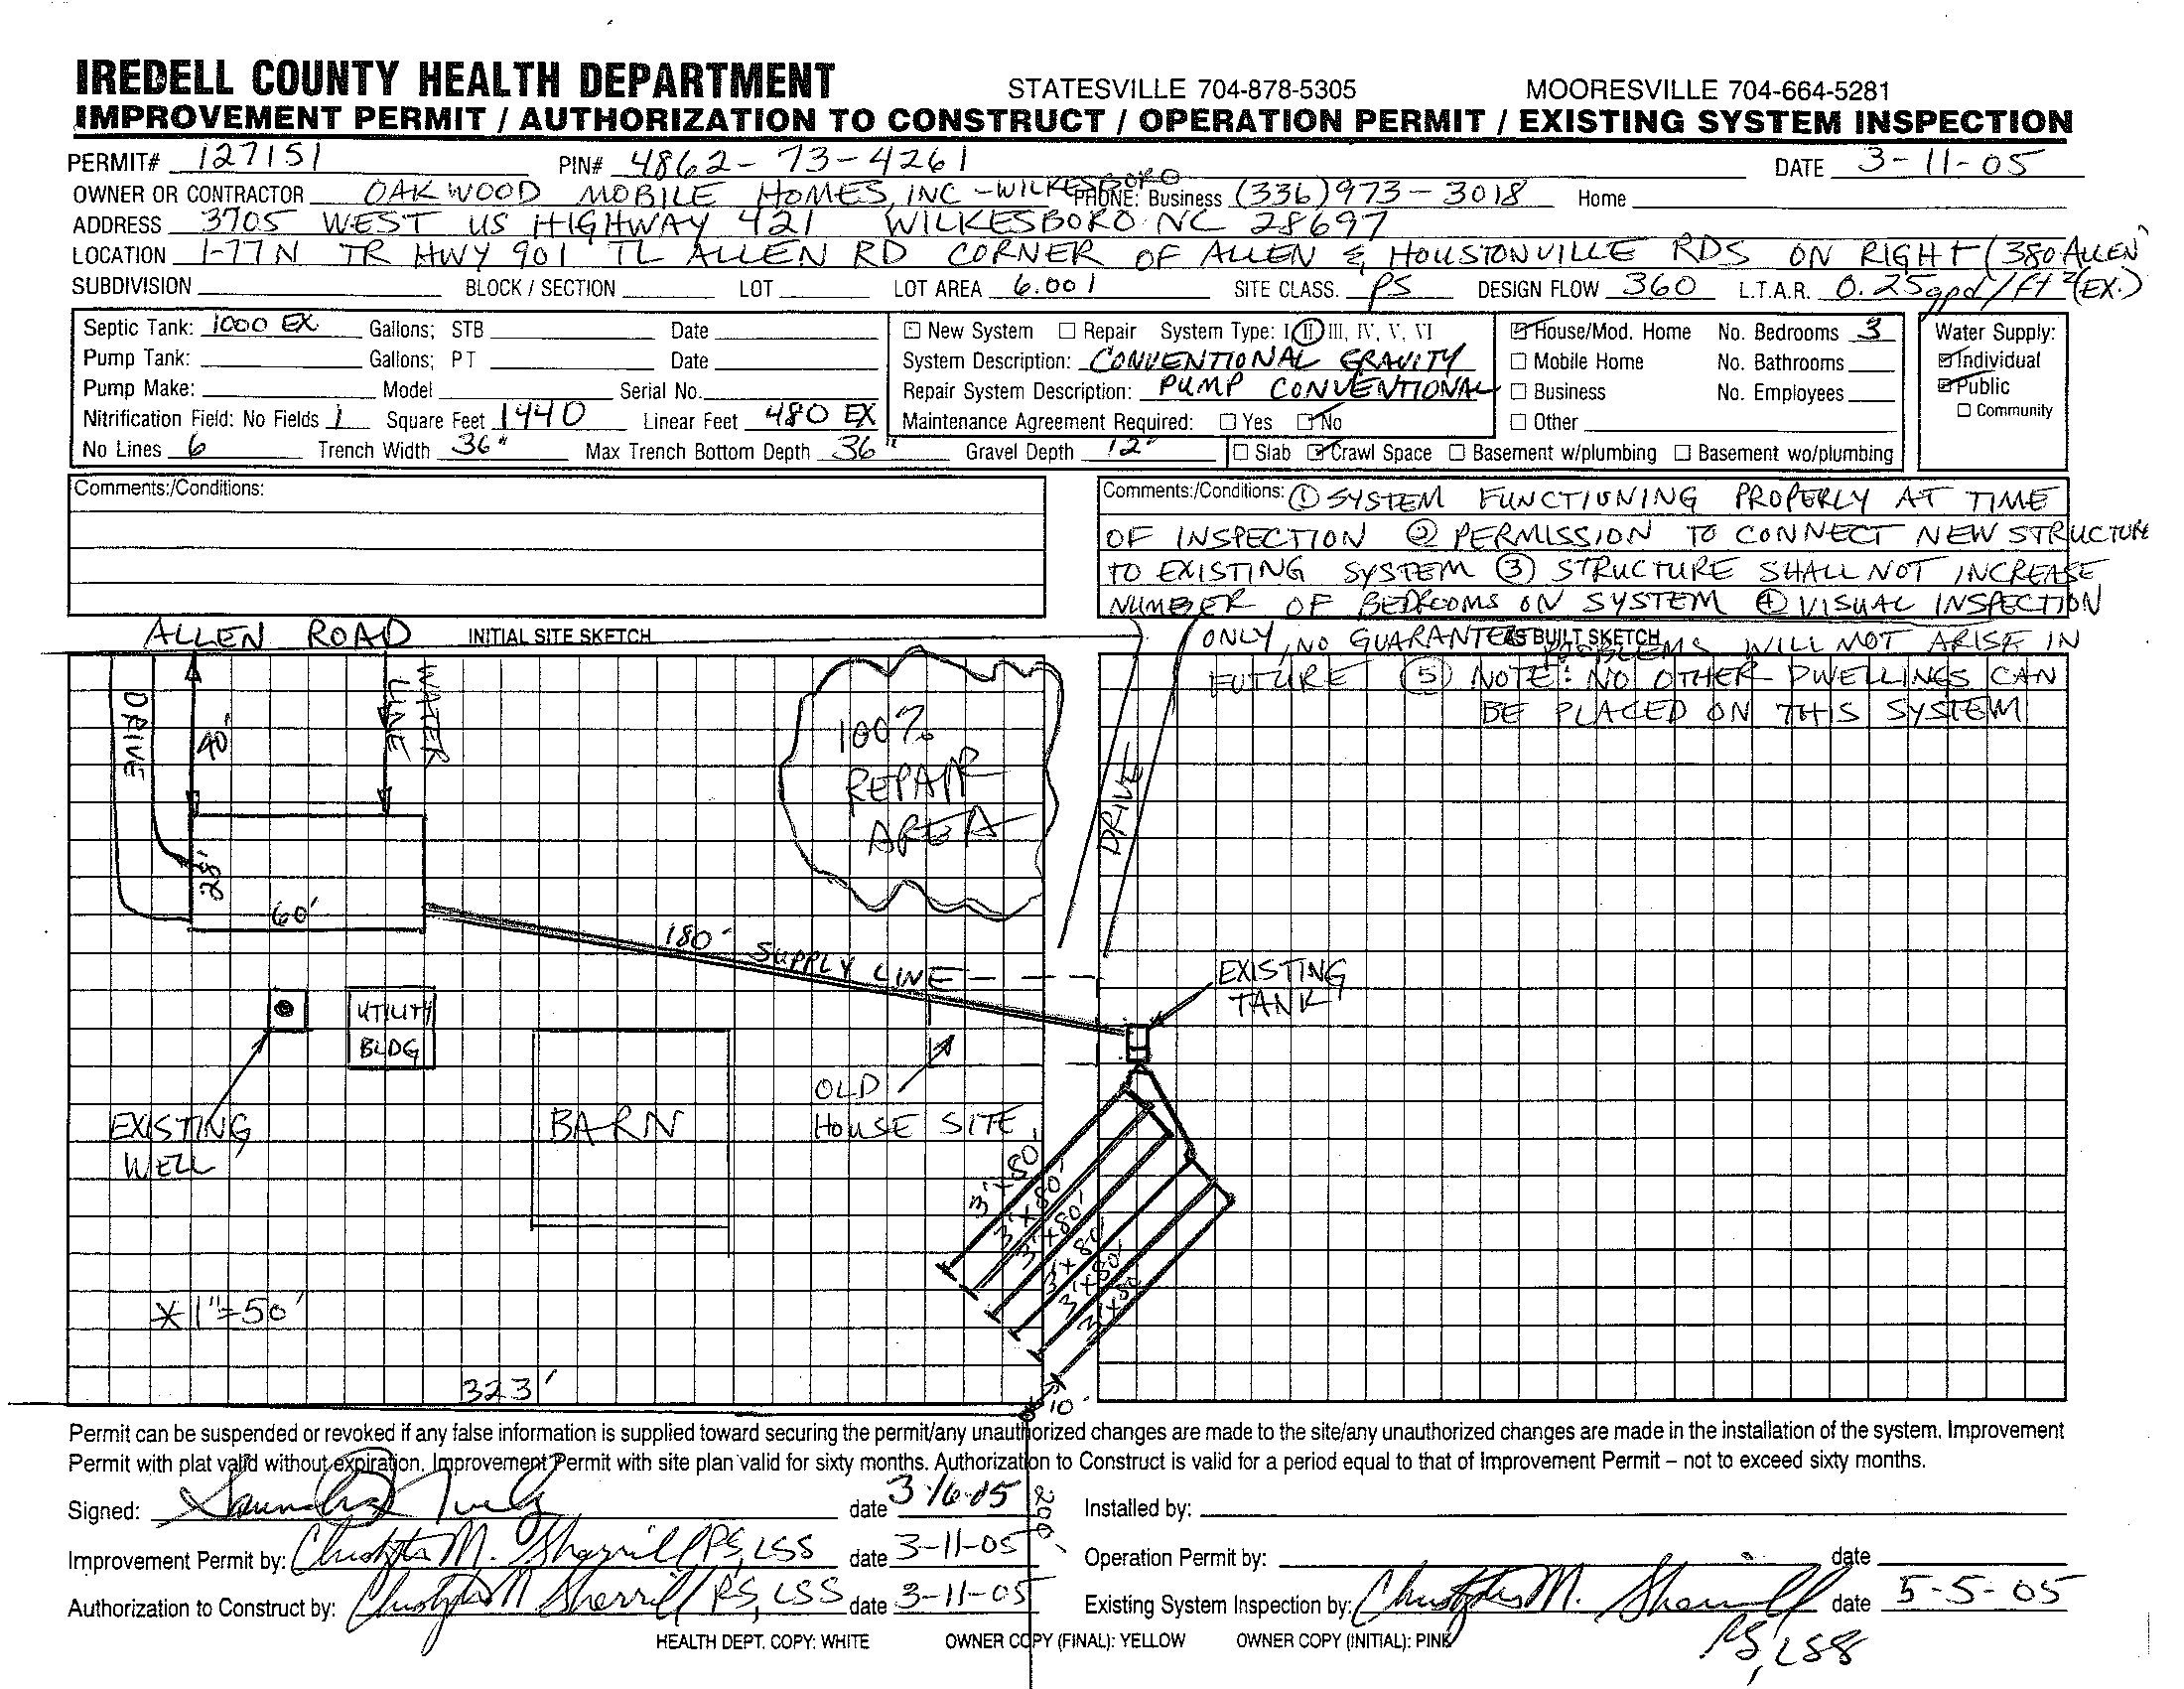 IREDELL COUNTY HEALTH DEPARTMENT STATESVILLE 704-878-5305 MOORESVILLE 704-664-5281
IMPROVEMENT PERMIT / AUTHORIZATION TO CONSTRUCT / OPERATION PERMIT / EXISTING SYSTEM INSPECTION
PERMIT# 127151 PIN# 4862-73-4261 DATE 3-11-05
OWNER OR CONTRACTOR OAKWOOD MOBILE HOMES, INC - WILKESBORO PHONE: Business (336) 973-3018 Home
ADDRESS 3705 WEST US HIGHWAY 421 WILKESBORO NC 28697
LOCATION I-77N TR HWY 901 TL ALLEN RD CORNER OF ALLEN & HOUSTONVILLE RDS ON RIGHT (380 ALLEN
SUBDIVISION BLOCK / SECTION LOT LOT AREA 6.001 SITE CLASS. PS DESIGN FLOW 360 L.T.A.R. 0.25gpd/ft² (EX.)
Septic Tank: 1000 EX Gallons; STB Date
Pump Tank: Gallons; PT Date
Pump Make: Model Serial No.
Nitrification Field: No Fields 1 Square Feet 1440 Linear Feet 480 EX
No Lines 6 Trench Width 36" Max Trench Bottom Depth 36" Gravel Depth 12"
New System Repair System Type: I, II, III, IV, V, VI
System Description: CONVENTIONAL GRAVITY
Repair System Description: PUMP CONVENTIONAL
Maintenance Agreement Required: Yes No
Slab Crawl Space Basement w/plumbing Basement wo/plumbing
House/Mod. Home No. Bedrooms 3
Mobile Home No. Bathrooms
Business No. Employees
Other
Water Supply:
Individual
Public
Community
Comments:/Conditions:
Comments:/Conditions: ① SYSTEM FUNCTIONING PROPERLY AT TIME
OF INSPECTION ② PERMISSION TO CONNECT NEW STRUCTURE
TO EXISTING SYSTEM ③ STRUCTURE SHALL NOT INCREASE
NUMBER OF BEDROOMS ON SYSTEM ④ VISUAL INSPECTION
ONLY, NO GUARANTEES PROBLEMS WILL NOT ARISE IN
FUTURE ⑤ NOTE: NO OTHER DWELLINGS CAN
BE PLACED ON THIS SYSTEM
ALLEN ROAD INITIAL SITE SKETCH
AS BUILT SKETCH
DRIVE
40'
WATER
LINE
100%
REPAIR
AREA
DRIVE
28'
60'
180' SUPPLY LINE
EXISTING
TANK
UTILITY
BLDG
OLD
HOUSE SITE
EXISTING
WELL
BARN
3'x80'
3'x80'
3'x80'
3'x80'
3'x80'
3'x80'
*1"=50'
323'
10'
Permit can be suspended or revoked if any false information is supplied toward securing the permit/any unauthorized changes are made to the site/any unauthorized changes are made in the installation of the system. Improvement
Permit with plat valid without expiration. Improvement Permit with site plan valid for sixty months. Authorization to Construct is valid for a period equal to that of Improvement Permit – not to exceed sixty months.
Signed: date 3-16-05
200'
Installed by:
Improvement Permit by: Christopher M. Sherrill RS, LSS date 3-11-05
Operation Permit by: date
Authorization to Construct by: Christopher M Sherrill RS, LSS date 3-11-05
Existing System Inspection by: Christopher M. Sherrill RS, LSS date 5-5-05
HEALTH DEPT. COPY: WHITE OWNER COPY (FINAL): YELLOW OWNER COPY (INITIAL): PINK